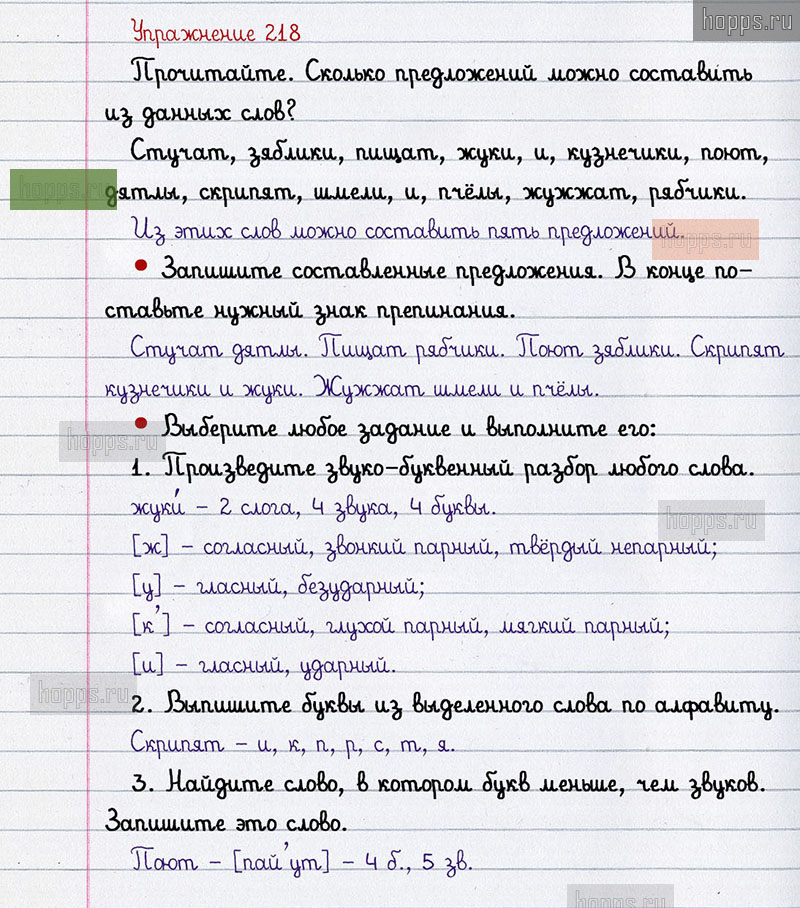 hopps.ru
Упражнение 218
Прочитайте. Сколько предложений можно составить
из данных слов?
Стучат, зяблики, пищат, жуки, и, кузнечики, поют,
hopps.ru
дятлы, скрипят, шмели, и, пчёлы, жужжат, рябчики.
Из этих слов можно составить пять предложений.
hopps.ru
• Запишите составленные предложения. В конце по-
ставьте нужный знак препинания.
Стучат дятлы. Пищат рябчики. Поют зяблики. Скрипят
кузнечики и жуки. Жужжат шмели и пчёлы.
• Выберите любое задание и выполните его:
hopps.ru
1. Произведите звуко-буквенный разбор любого слова.
жуки́ – 2 слога, 4 звука, 4 буквы.
hopps.ru
[ж] – согласный, звонкий парный, твёрдый непарный;
[у] – гласный, безударный;
[к’] – согласный, глухой парный, мягкий парный;
[и] – гласный, ударный.
hopps.ru
2. Выпишите буквы из выделенного слова по алфавиту.
Скрипят – и, к, п, р, с, т, я.
3. Найдите слово, в котором букв меньше, чем звуков.
Запишите это слово.
Поют – [пай’ут] – 4 б., 5 зв.
hopps.ru